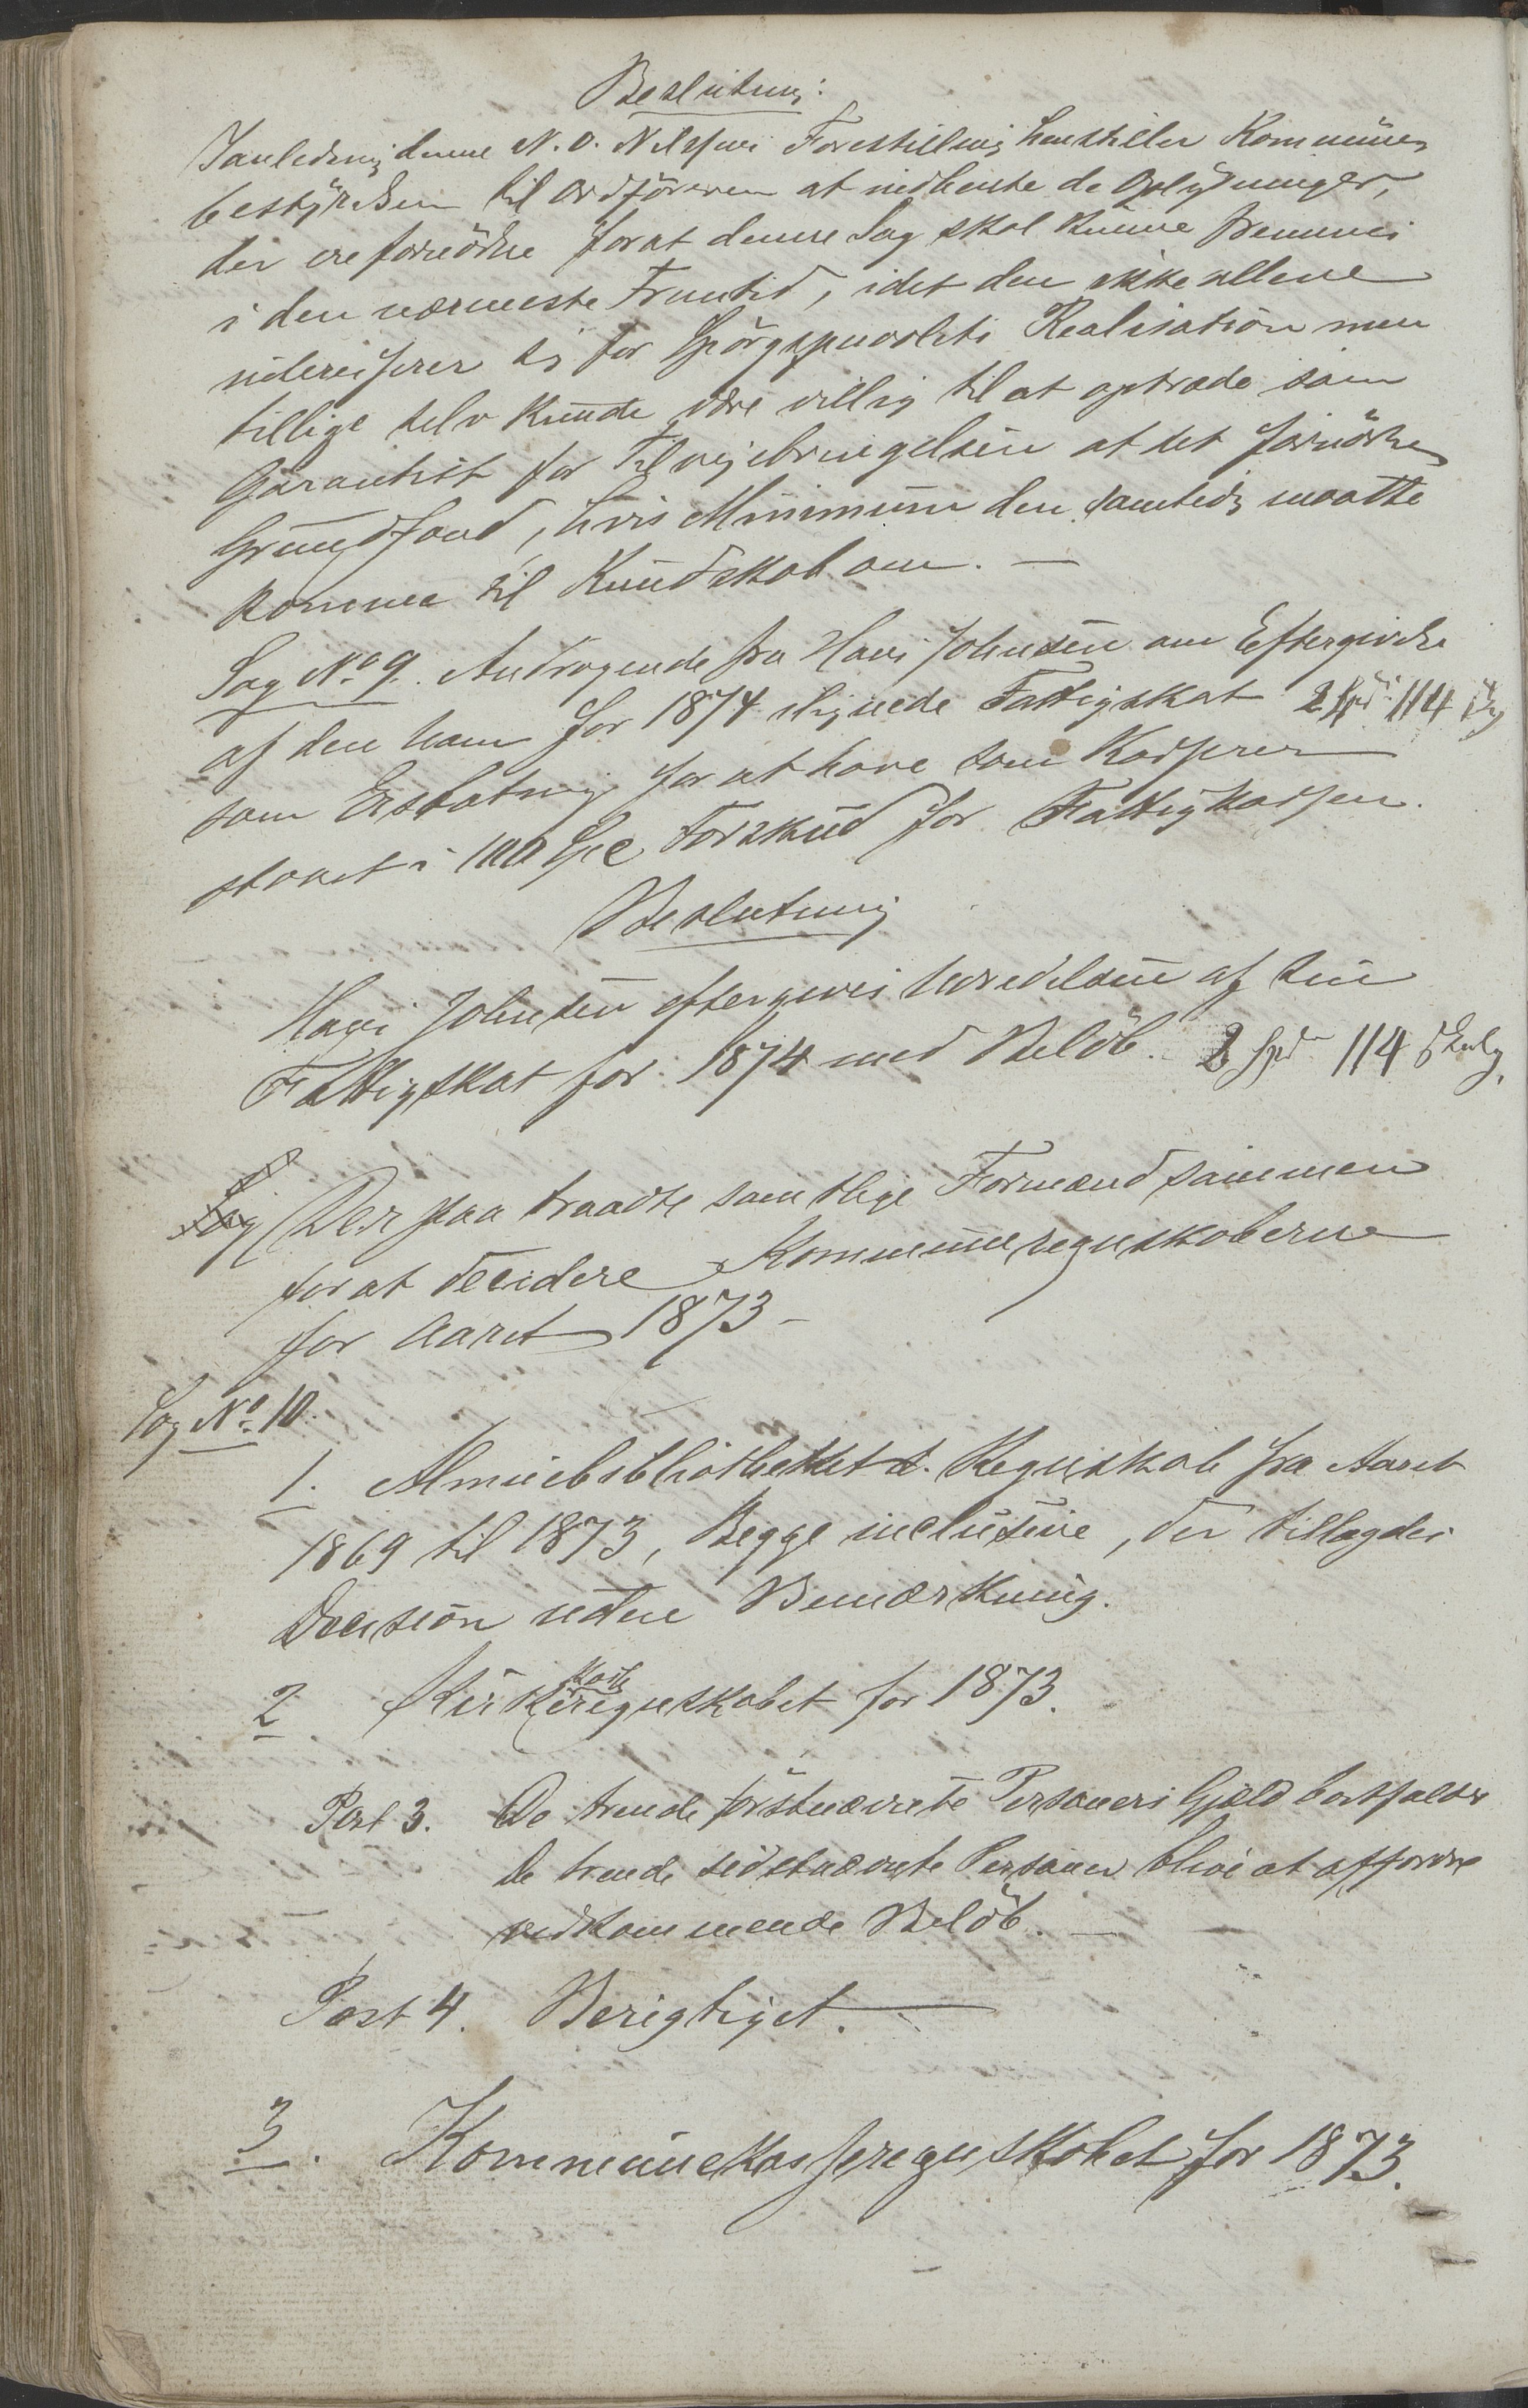 Beslutning:
I anledning denne N. O. Nilssens Forestilling henstiller Kommune-
bestÿrelsen til Ordföreren at indhente de Oplÿsninger,
der ere fornödne forat denne Sag skal kunne fremmes
i den nærmeste Fremtid, idet den ikke allene
interesserer sig for Spörgsmaalets Realisation men
tillige selv kunde være villig til at optræde som
Garantist for Tilvejebringelsen af det fornödne
Grundfond, hvis Minimum den samtidig maatte
komme til Kundskab om. —
Sag No 9. Andragende fra Hans Johnsen om Eftergivelse
af den ham for 1874 ilignede Fattigskat 2 Spd 114 s
som Erstatning for at have som Kasserer
staaet i 100 Spd Forskud for Fattigkassen.
Beslutning
Hans Johnsen eftergives Udredelsen af sin
Fattigskat for 1874 med Belöb 2 Spd 114 Skilg.
Sag Derpaa traadte samtlige Formænd sammen
forat decidere Kommuneregnskaberne
for Aaret 1873 –
Sag No 10.
1. Almuebibliotheket s. Regnskab fra Aaret
1869 til 1873, Begge inclusive, der tillagdes
Decision uden Bemærkning.
2 Kirkekasseregnskabet for 1873.
Post 3. De trende förstnævnte Personers Gjæld bortfalder
De trende sidstnævnte Personer blive at affordre
vedkommende Belöb. —
Post 4. Berigtiget. —
3. Kommunekasseregnskabet for 1873.